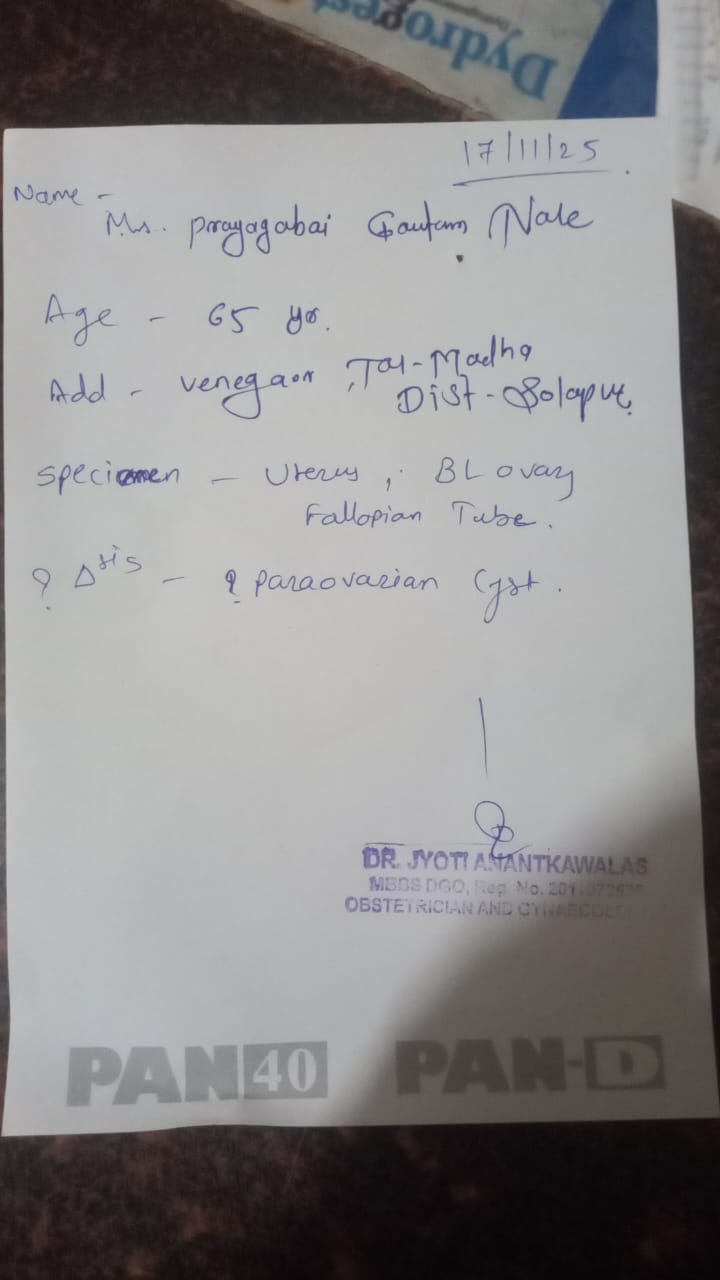 Dydrogest
17/11/25
Name -
Ms. Prayagabai Gautam Nale
Age - 65 yr.
Add - venegaon, Tal-Madha
Dist-Solapur.
Specimen - Uterus, BL ovary
Fallopian Tube.
? Δsis - ? paraovarian Cyst.
DR. JYOTI ANANTKAWALAS
MBBS DGO, Reg. No.
OBSTETRICIAN AND
PAN 40 PAN-D